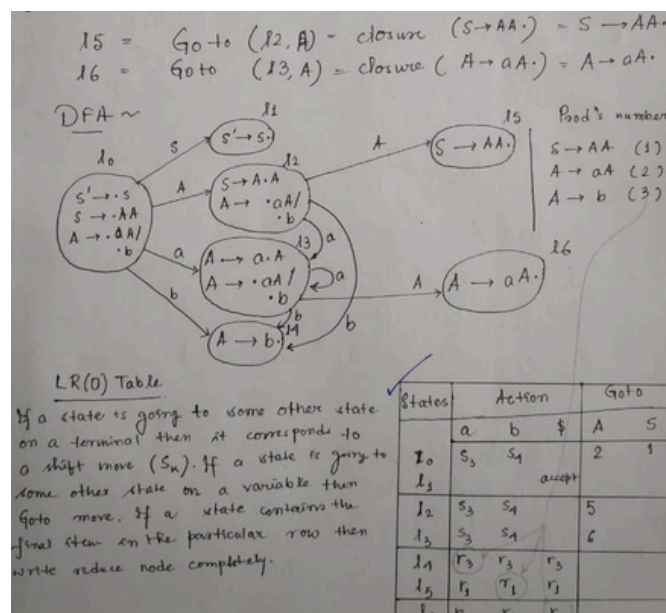 I5 = Go to (I2, A) = closure (S→AA·) = S → AA·
I6 = Go to (I3, A) = closure ( A → aA·) = A → aA·
DFA ~
I0
S' → ·S
S → ·AA
A → ·aA/
·b
S
A
a
b
I1
S' → S·
I2
S → A·A
A → ·aA/
·b
I3
A → a·A
A → ·aA/
·b
I4
A → b·
a
a
b
b
A
I5
S → AA·
A
I6
A → aA·
Prod's number
S → AA (1)
A → aA (2)
A → b (3)
LR(0) Table
If a state is going to some other state
on a terminal then it corresponds to
a shift move (Sn). If a state is going to
some other state on a variable then
Goto move. If a state contains the
final item in the particular row then
write reduce node completely.
States Action Goto
a b $ A S
I0 S3 S4 2 1
I1 accept
I2 S3 S4 5
I3 S3 S4 6
I4 r3 r3 r3
I5 r1 r1 r1